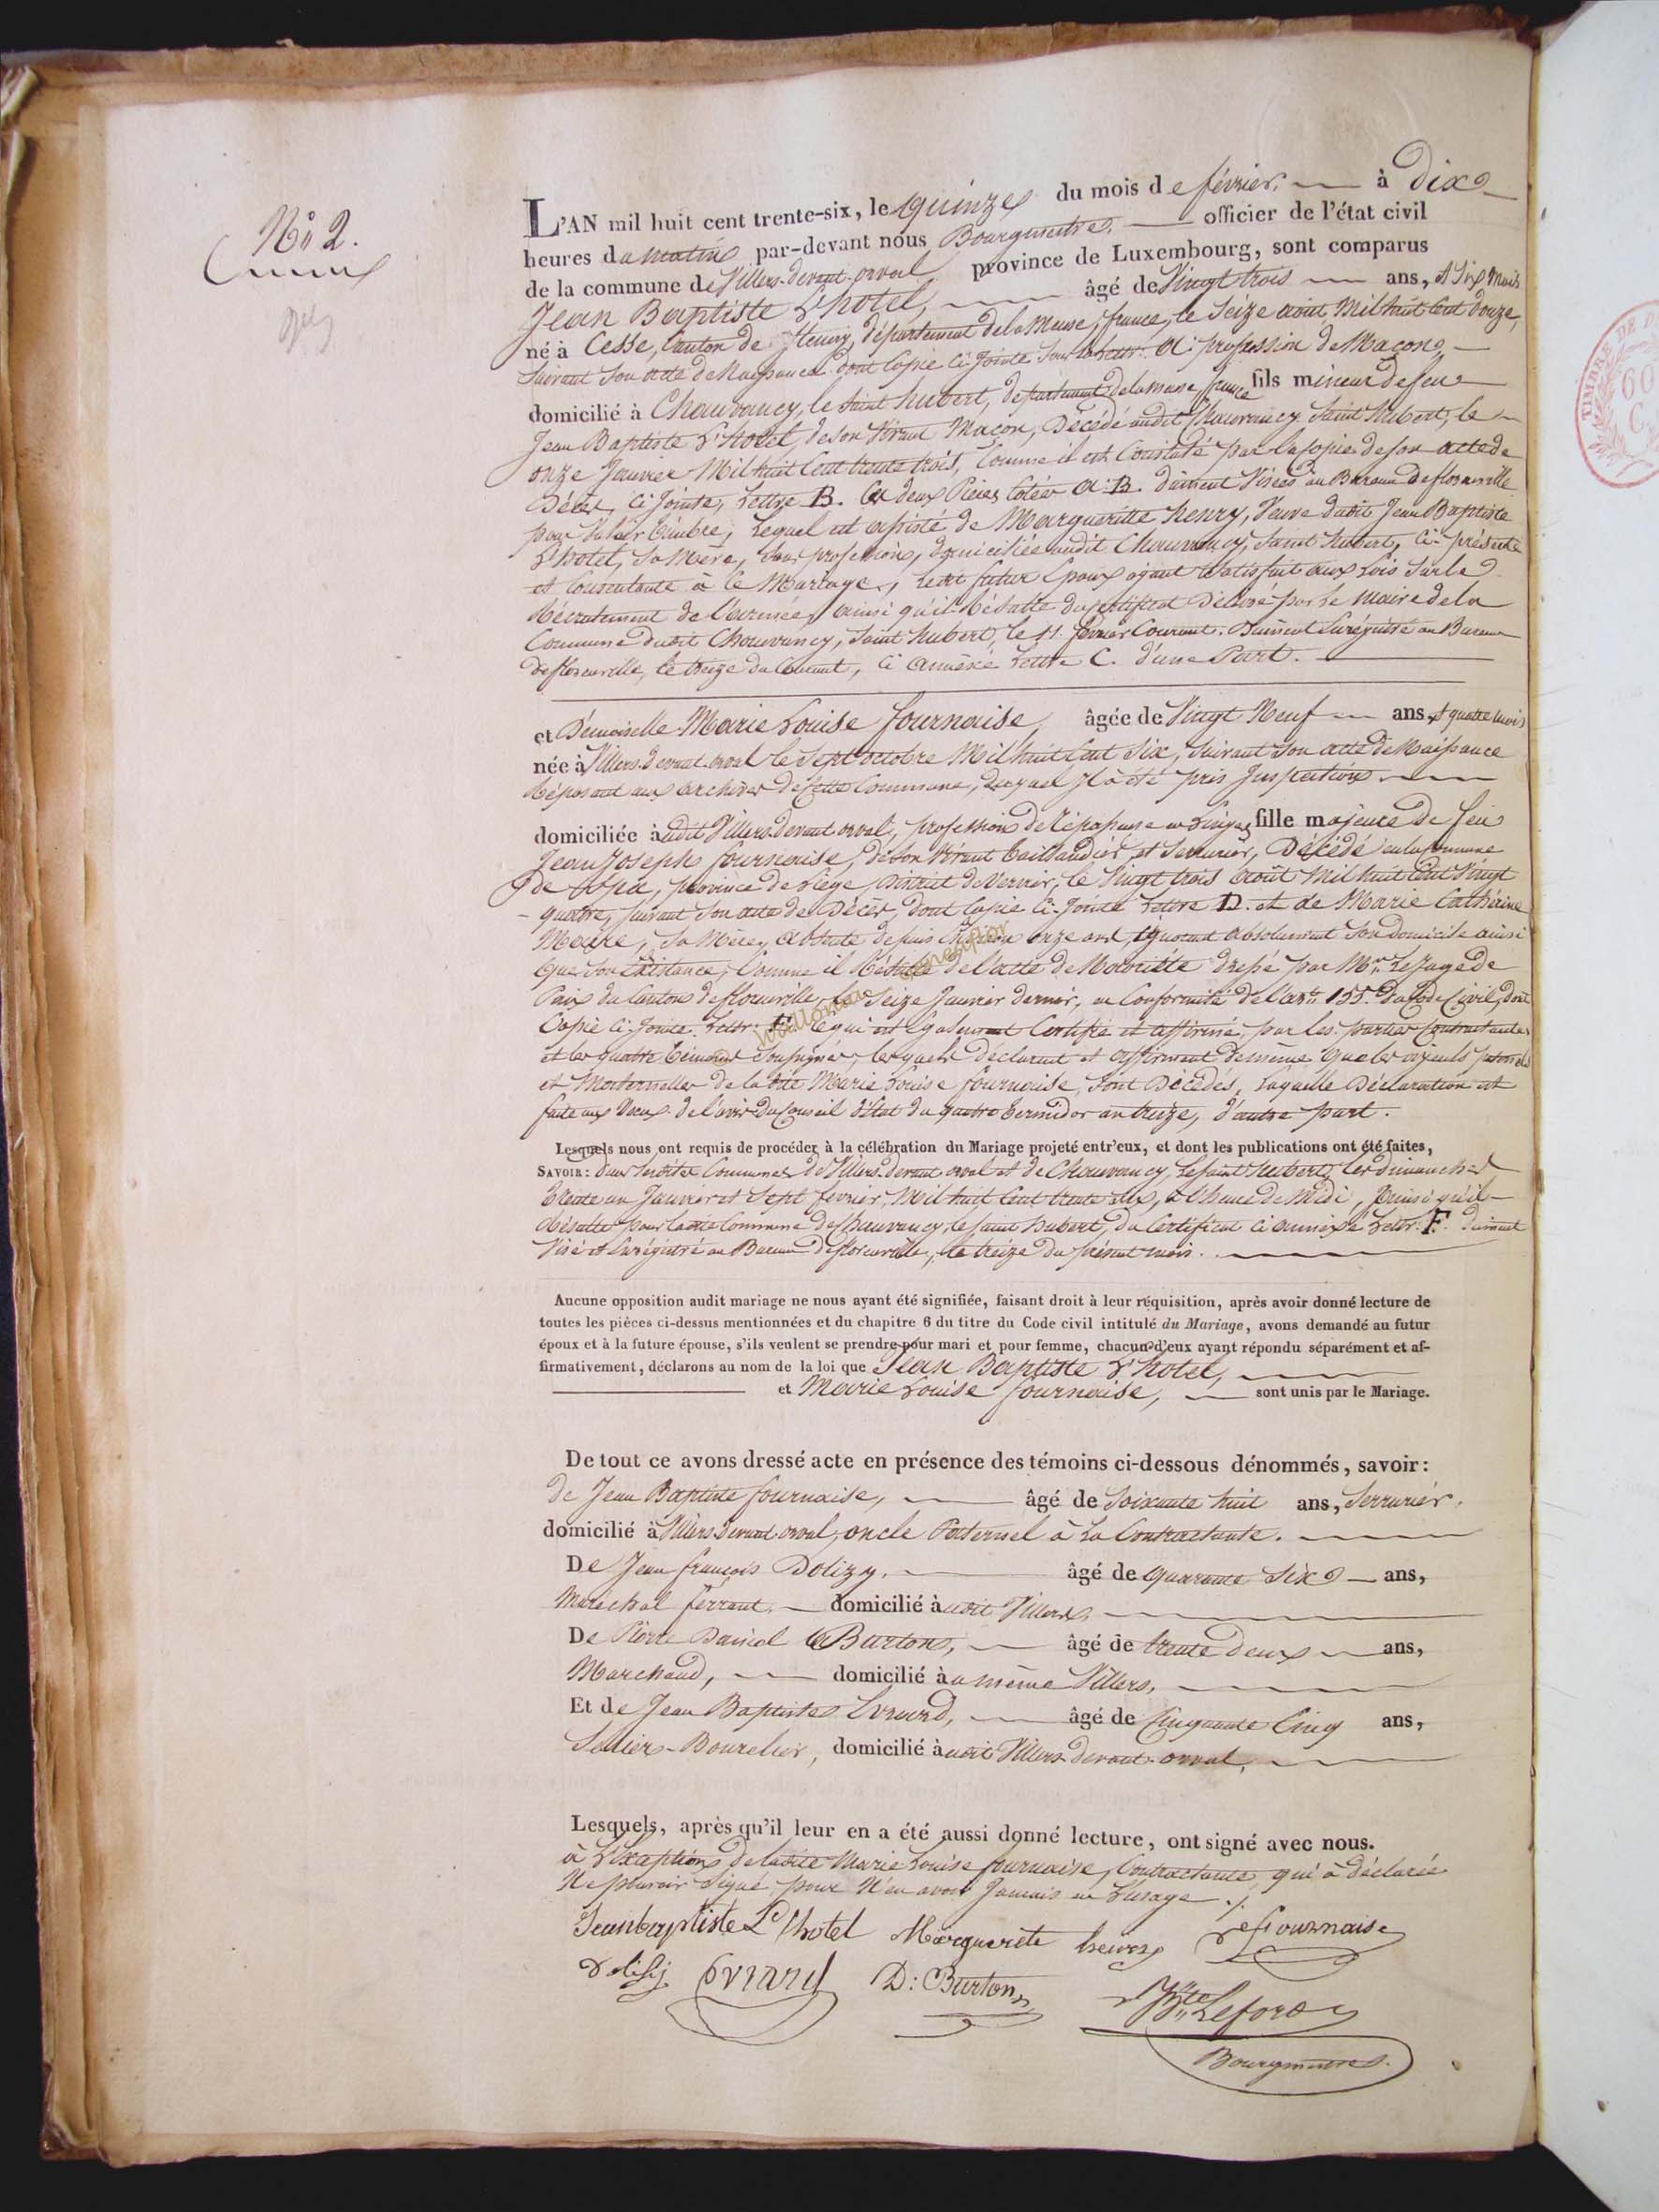 N° 2.
L'AN mil huit cent trente-six, le quinze du mois de février. à dix
heures du matin par-devant nous Bourgmestre. officier de l'état civil
de la commune de Villers-devant-orval province de Luxembourg, sont comparus
Jean Baptiste L'hotel, âgé de Vingt trois ans, et Six Mois
né à Cesse, Canton de Stenay, département de la Meuse, france, le Seize août Mil huit Cent douze,
Suivant Son acte de Naissance dont Copie Ci-Jointe Sous la lettre A: profession de Maçon,
domicilié à Chauvancy, le Saint hubert, département de la meuse france fils mineur de feu
Jean Baptiste L'hotel, de Son Vivant Maçon, Décédé audit Chauvancy Saint hubert, le
onze Janvier Mil huit Cent trente trois, Comme il est Constaté par la Copie de Son acte de
Décès, Ci Jointe, Lettre B. Ces deux Pièces Cotées A. B. dûment Visées au Bureau de florenville
pour Valoir timbre, Lequel est assisté de Margueritte henry, Veuve dudit Jean Baptiste
L'hotel, Sa Mère, Sans profession, domiciliée audit Chauvancy, Saint hubert, Ci-présente
et Consentante à Ce Mariage, ledit futur Epoux ayant Satisfait aux Lois Sur le
Récrutement de l'armée, ainsi qu'il Résulte du Certificat Délivré par le Maire de la
Commune dudit Chauvancy, Saint hubert, le 11. février Courant. Dûment Enrégistré au Bureau
de florenville, le treize du Courant, Ci Annéxé Lettre C. d'une Part.
et Démoiselle Marie Louise fournaise, âgée de Vingt Neuf ans, et quatre mois
née à Villers-devant-orval le Sept octobre Mil huit Cent Six, Suivant Son acte de Naissance
Réposant aux Archives de Cette Commune, duquel Il a été pris Inspection
domiciliée audit Villers-devant orval, profession de Répasseuse en Linges fille majeure de feu
Jean Joseph fournaise, de Son Vivant taillandier et Serrurier, Décédé en la Commune
de Spa, province de Liège, District de Vervier, le Vingt trois Août Mil huit Cent Vingt
quatre, Suivant Son acte de Décès, dont Copie Ci-Jointe Lettre D. et de Marie Cathérine
Maire, Sa Mère, absente depuis environ onze ans, ignorant absolument Son domicile ainsi
que Son Existance, Comme il Résulte de l'acte de Notoriété dressé par Mr. Le Juge de
Paix du Canton de florenville, le Seize Janvier dernier, en Conformité de l'art. 155. du Code Civil, dont
Copie Ci-Jointe Lettr. E. Ce qui est également Certifié et affirmé, par les parties Contractantes
et les quatre témoins Soussignés, lesquels déclarent et affirment de même que les aÿeuls paternels
et Maternelles de la dite Marie Louise fournaise, Sont Décédés, Laquelle Déclaration est
faite aux Vœux de l'avis du Conseil d'Etat du quatre termidor an treize, d'autre part.
wallonica genealor
Lesquels nous ont requis de procéder à la célébration du Mariage projeté entr'eux, et dont les publications ont été faites,
SAVOIR: dans Susdites Communes de Villers-devant orval et de Chauvancy, Le Saint hubert, les dimanches
trente un Janvier et Sept février, Mil huit Cent trente Six, à l'heure de Midi, Ainsi qu'il
Résulte pour ladite Commune de Chauvancy, le Saint hubert, du Certificat Ci annéxé Lettr. F. dûment
Visé et Enrégistré au Bureau de florenville, le treize du présent mois.
Aucune opposition audit mariage ne nous ayant été signifiée, faisant droit à leur réquisition, après avoir donné lecture de
toutes les pièces ci-dessus mentionnées et du chapitre 6 du titre du Code civil intitulé du Mariage, avons demandé au futur
époux et à la future épouse, s'ils veulent se prendre pour mari et pour femme, chacun d'eux ayant répondu séparément et af-
firmativement, déclarons au nom de la loi que Jean Baptiste L'hotel,
et Marie Louise fournaise, sont unis par le Mariage.
De tout ce avons dressé acte en présence des témoins ci-dessous dénommés, savoir:
de Jean Baptiste fournaise, âgé de Soixante huit ans, Serrurier,
domicilié à Villers-devant-orval, oncle Paternel à La Contractante.
De Jean françois Dolizy. âgé de quarante Six ans,
Maréchal ferrant, domicilié audit Villers,
De Pierre Daniel Burton, âgé de trente deux ans,
Marchand, domicilié au même Villers,
Et de Jean Baptiste Evrard, âgé de Cinquante Cinq ans,
Sellier-Bourelier, domicilié audit Villers-devant-orval,
Lesquels, après qu'il leur en a été aussi donné lecture, ont signé avec nous.
à L'Exeption de ladite Marie Louise fournaise, Contractante, qui a déclarée
Ne pouvoir Signé pour N'en avoir Jamais eu L'usage ./.
Jeanbaptiste L'hotel Marguerite henry fournaise
dolisy Evrard D: Burton
Bte Lefort
Bourgmestre.
TIMBRE DE
60
C.